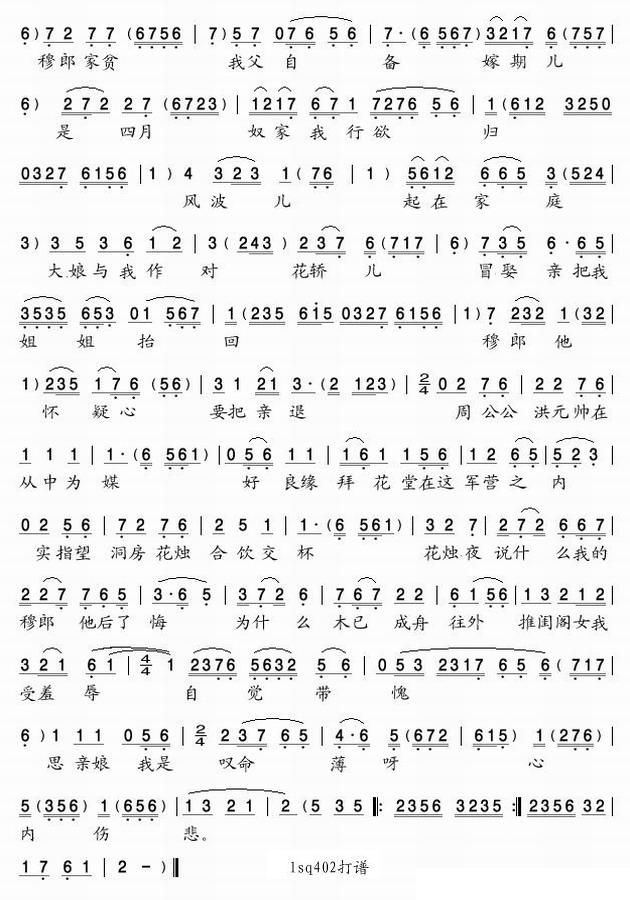 6)7 2 7 7 (6756 | 7)5 7 076 5 6 | 7·(6 567)3217 6(757 |
穆郎家贫 我父自 备 嫁期儿
6) 272 27(6723) | 1217 671 7276 56 | 1(612 3250
是 四月 奴家我行欲 归
0327 6156 | 1)4 323 1(76 | 1) 5612 665 3(524 |
风波儿 起在家庭
3)3 5 3 6 1 2 | 3(243) 237 6(717 | 6)7 35 6·65 |
大娘与我作 对 花轿儿 冒娶 亲把我
3535 653 01 567 | 1(235 615 0327 6156 | 1)7 232 1(32 |
姐姐抬 回 穆郎他
1)235 176(56) | 3 1 21 3·(2 123) | 2/4 02 76 | 22 76 |
怀疑心 要把亲退 周公公 洪元帅在
1 1 1 | 1·(6 561) | 056 11 | 161 156 | 12 65 | 523 |
从中为 媒 好良缘 拜花堂在这军营之内
02 56 | 72 76 | 25 1 | 1·(6 561) | 32 7 | 272 667 |
实指望 洞房花烛 合饮交 杯 花烛夜 说什么我的
227 765 | 3·6 5 | 372 6 | 767 22 | 61 56 | 13 212 |
穆郎 他后了 悔 为什么 木已成舟 往外 推闺阁女我
321 61 | 4/4 1 2376 5632 56 | 053 2317 65 6(717 |
受羞辱 自觉带 愧
6)1 11 056 | 2/4 237 65 | 4·6 5(672 | 615) 1(276) |
思亲娘 我是 叹命 薄呀 心
5(356) 1(656) | 13 21 | 2(5 35 ‖: 2356 3235 :‖ 2356 32 |
内 伤 悲。
17 61 | 2 - )‖ lsq402打谱